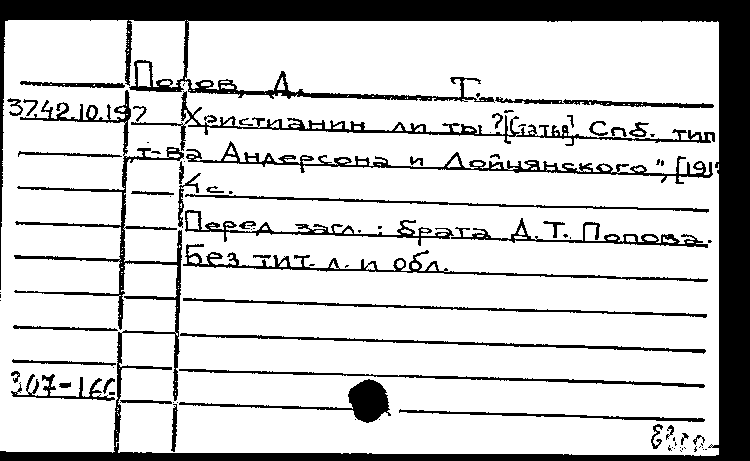 Попов, Д. Т.
37.42.10.197 Христианин ли ты? [Статья]. Спб., тип
„т-ва Андерсона и Лойцянского“, [191
4 с.
Перед загл.: брата Д.Т. Попова.
Без тит. л. и обл.
307-166